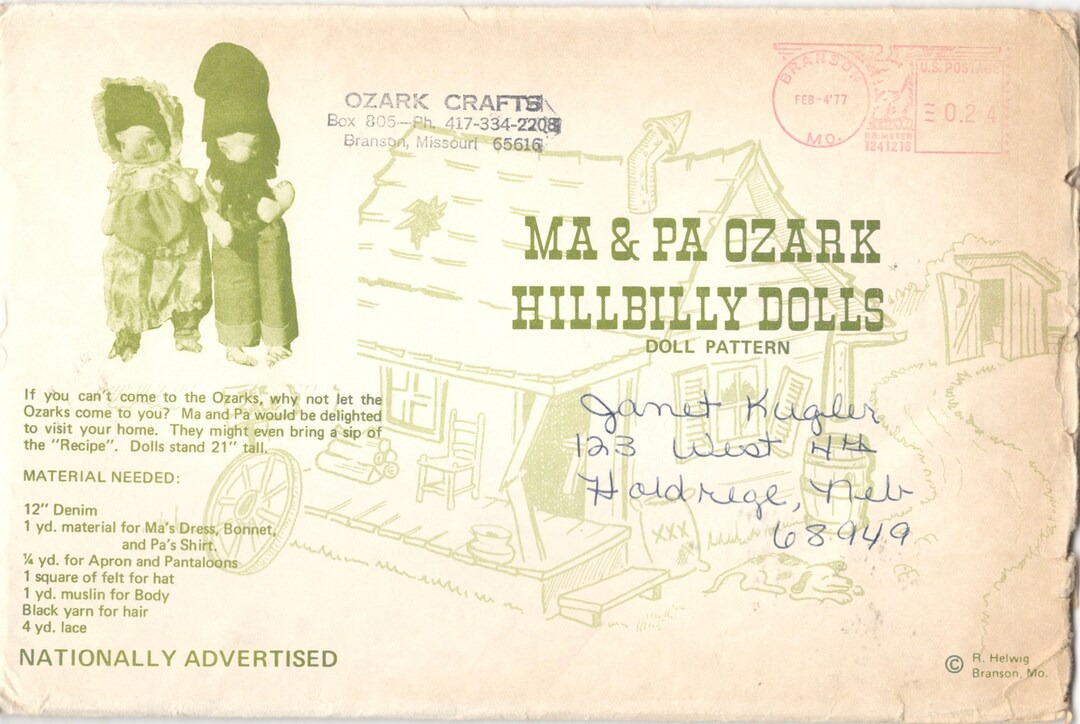 OZARK CRAFTS
Box 805—Ph. 417-334-2208
Branson, Missouri 65616
BRANSON
FEB-4'77
MO.
U.S. POSTAGE
0.24
P.B. METER
1241210
MA & PA OZARK
HILLBILLY DOLLS
DOLL PATTERN
If you can't come to the Ozarks, why not let the
Ozarks come to you? Ma and Pa would be delighted
to visit your home. They might even bring a sip of
the "Recipe". Dolls stand 21" tall.
MATERIAL NEEDED:
12" Denim
1 yd. material for Ma's Dress, Bonnet,
and Pa's Shirt.
¼ yd. for Apron and Pantaloons
1 square of felt for hat
1 yd. muslin for Body
Black yarn for hair
4 yd. lace
NATIONALLY ADVERTISED
Janet Kugler
123 West 4th
Holdrege, Neb
68949
XXX
© R. Helwig
Branson, Mo.